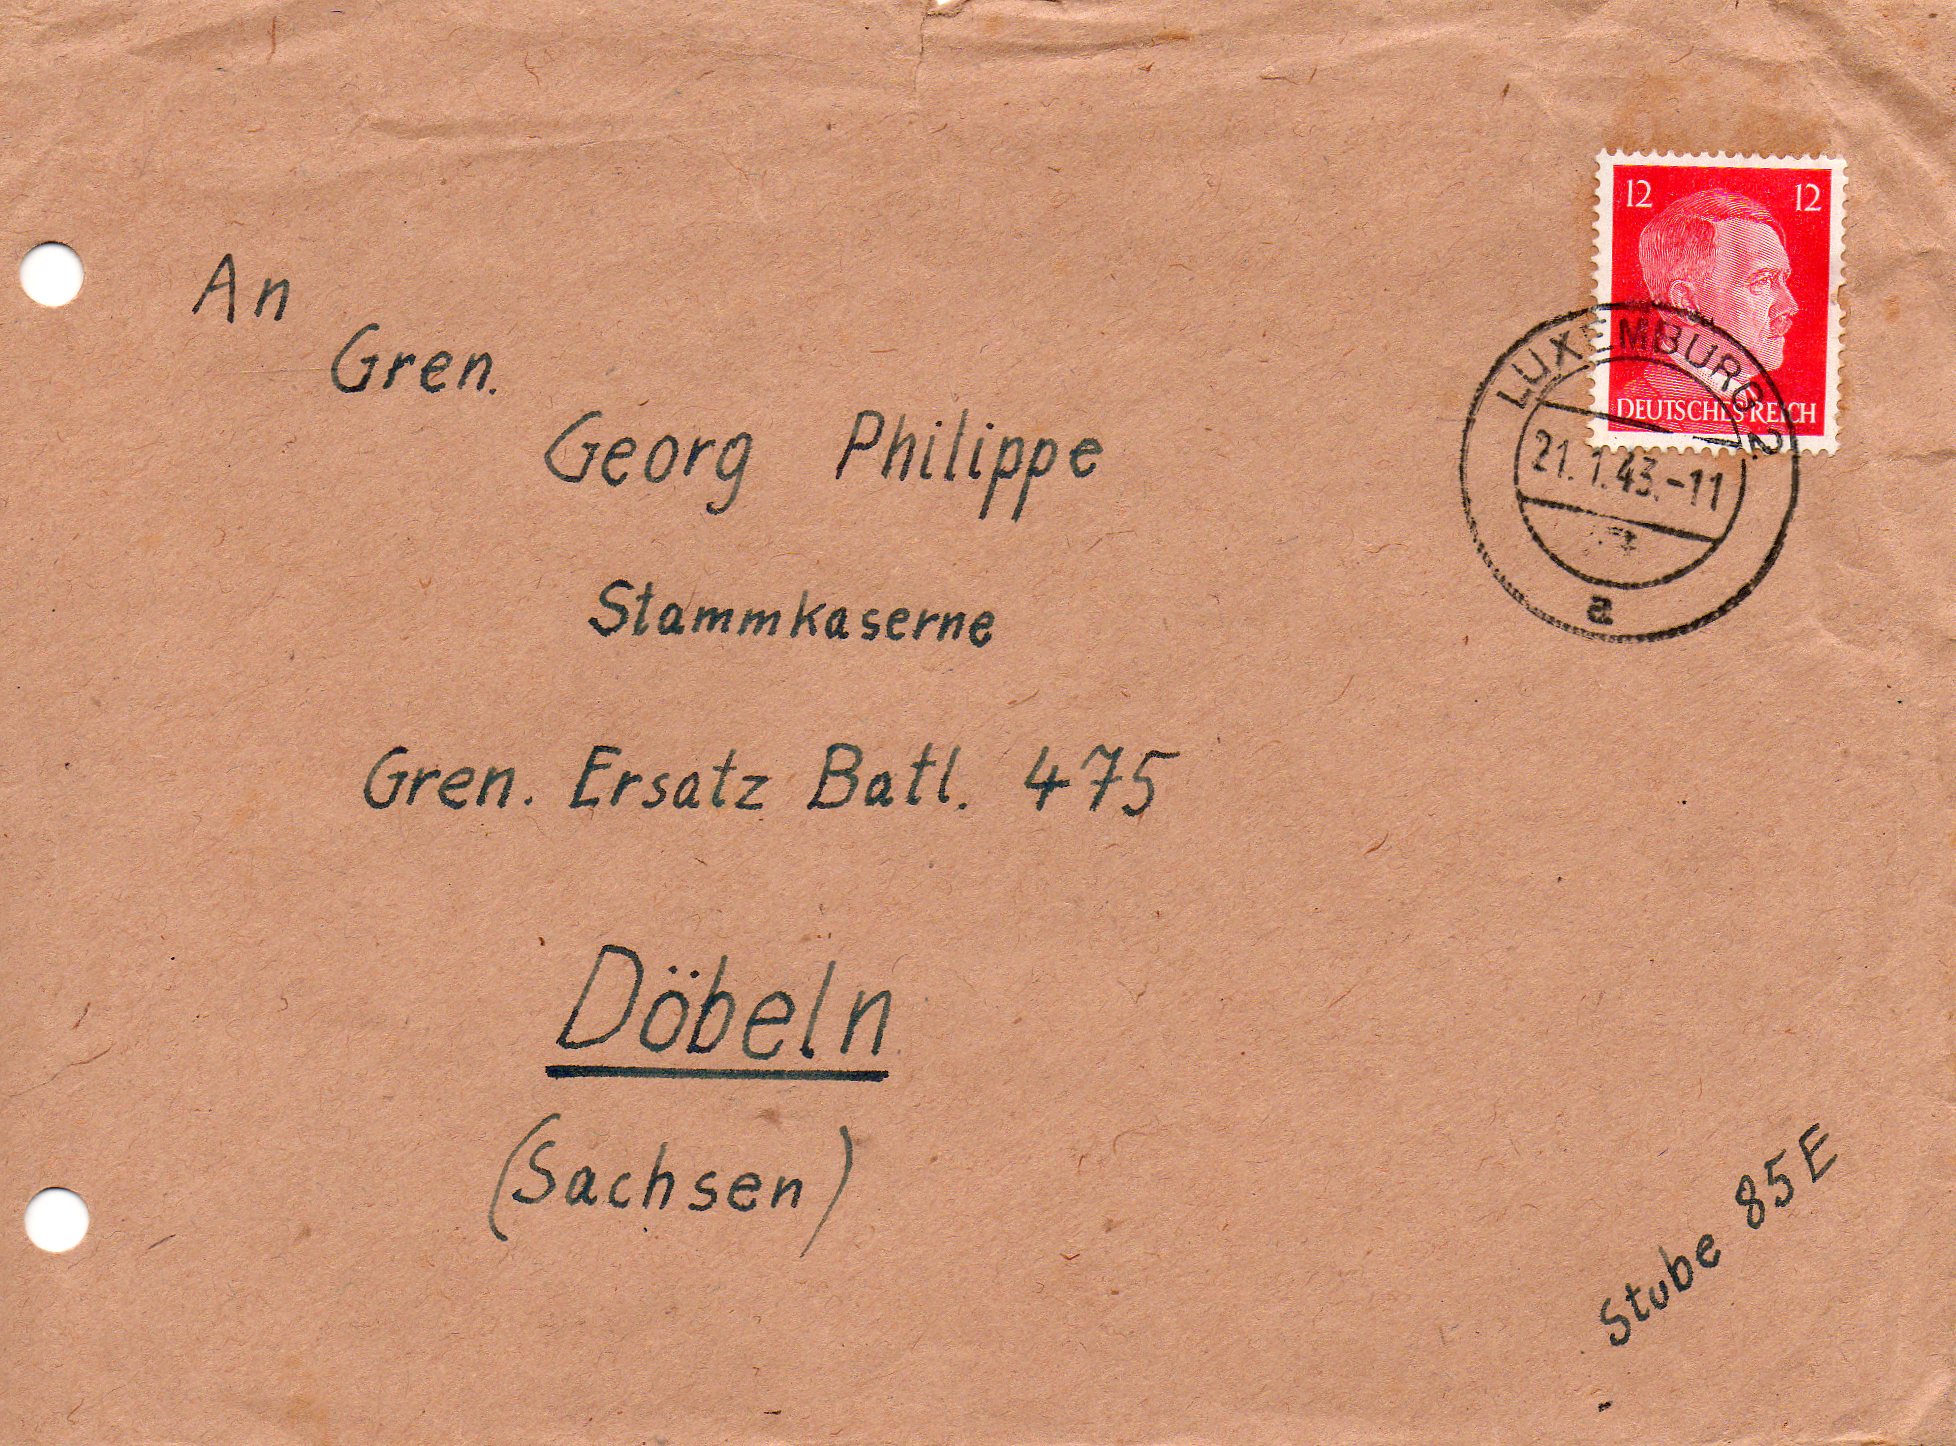 12 12
DEUTSCHES REICH
LUXEMBURG 2
21.1.43.-11
a
An
Gren.
Georg Philippe
Stammkaserne
Gren. Ersatz Batl. 475
Döbeln
(Sachsen)
Stube 85 E